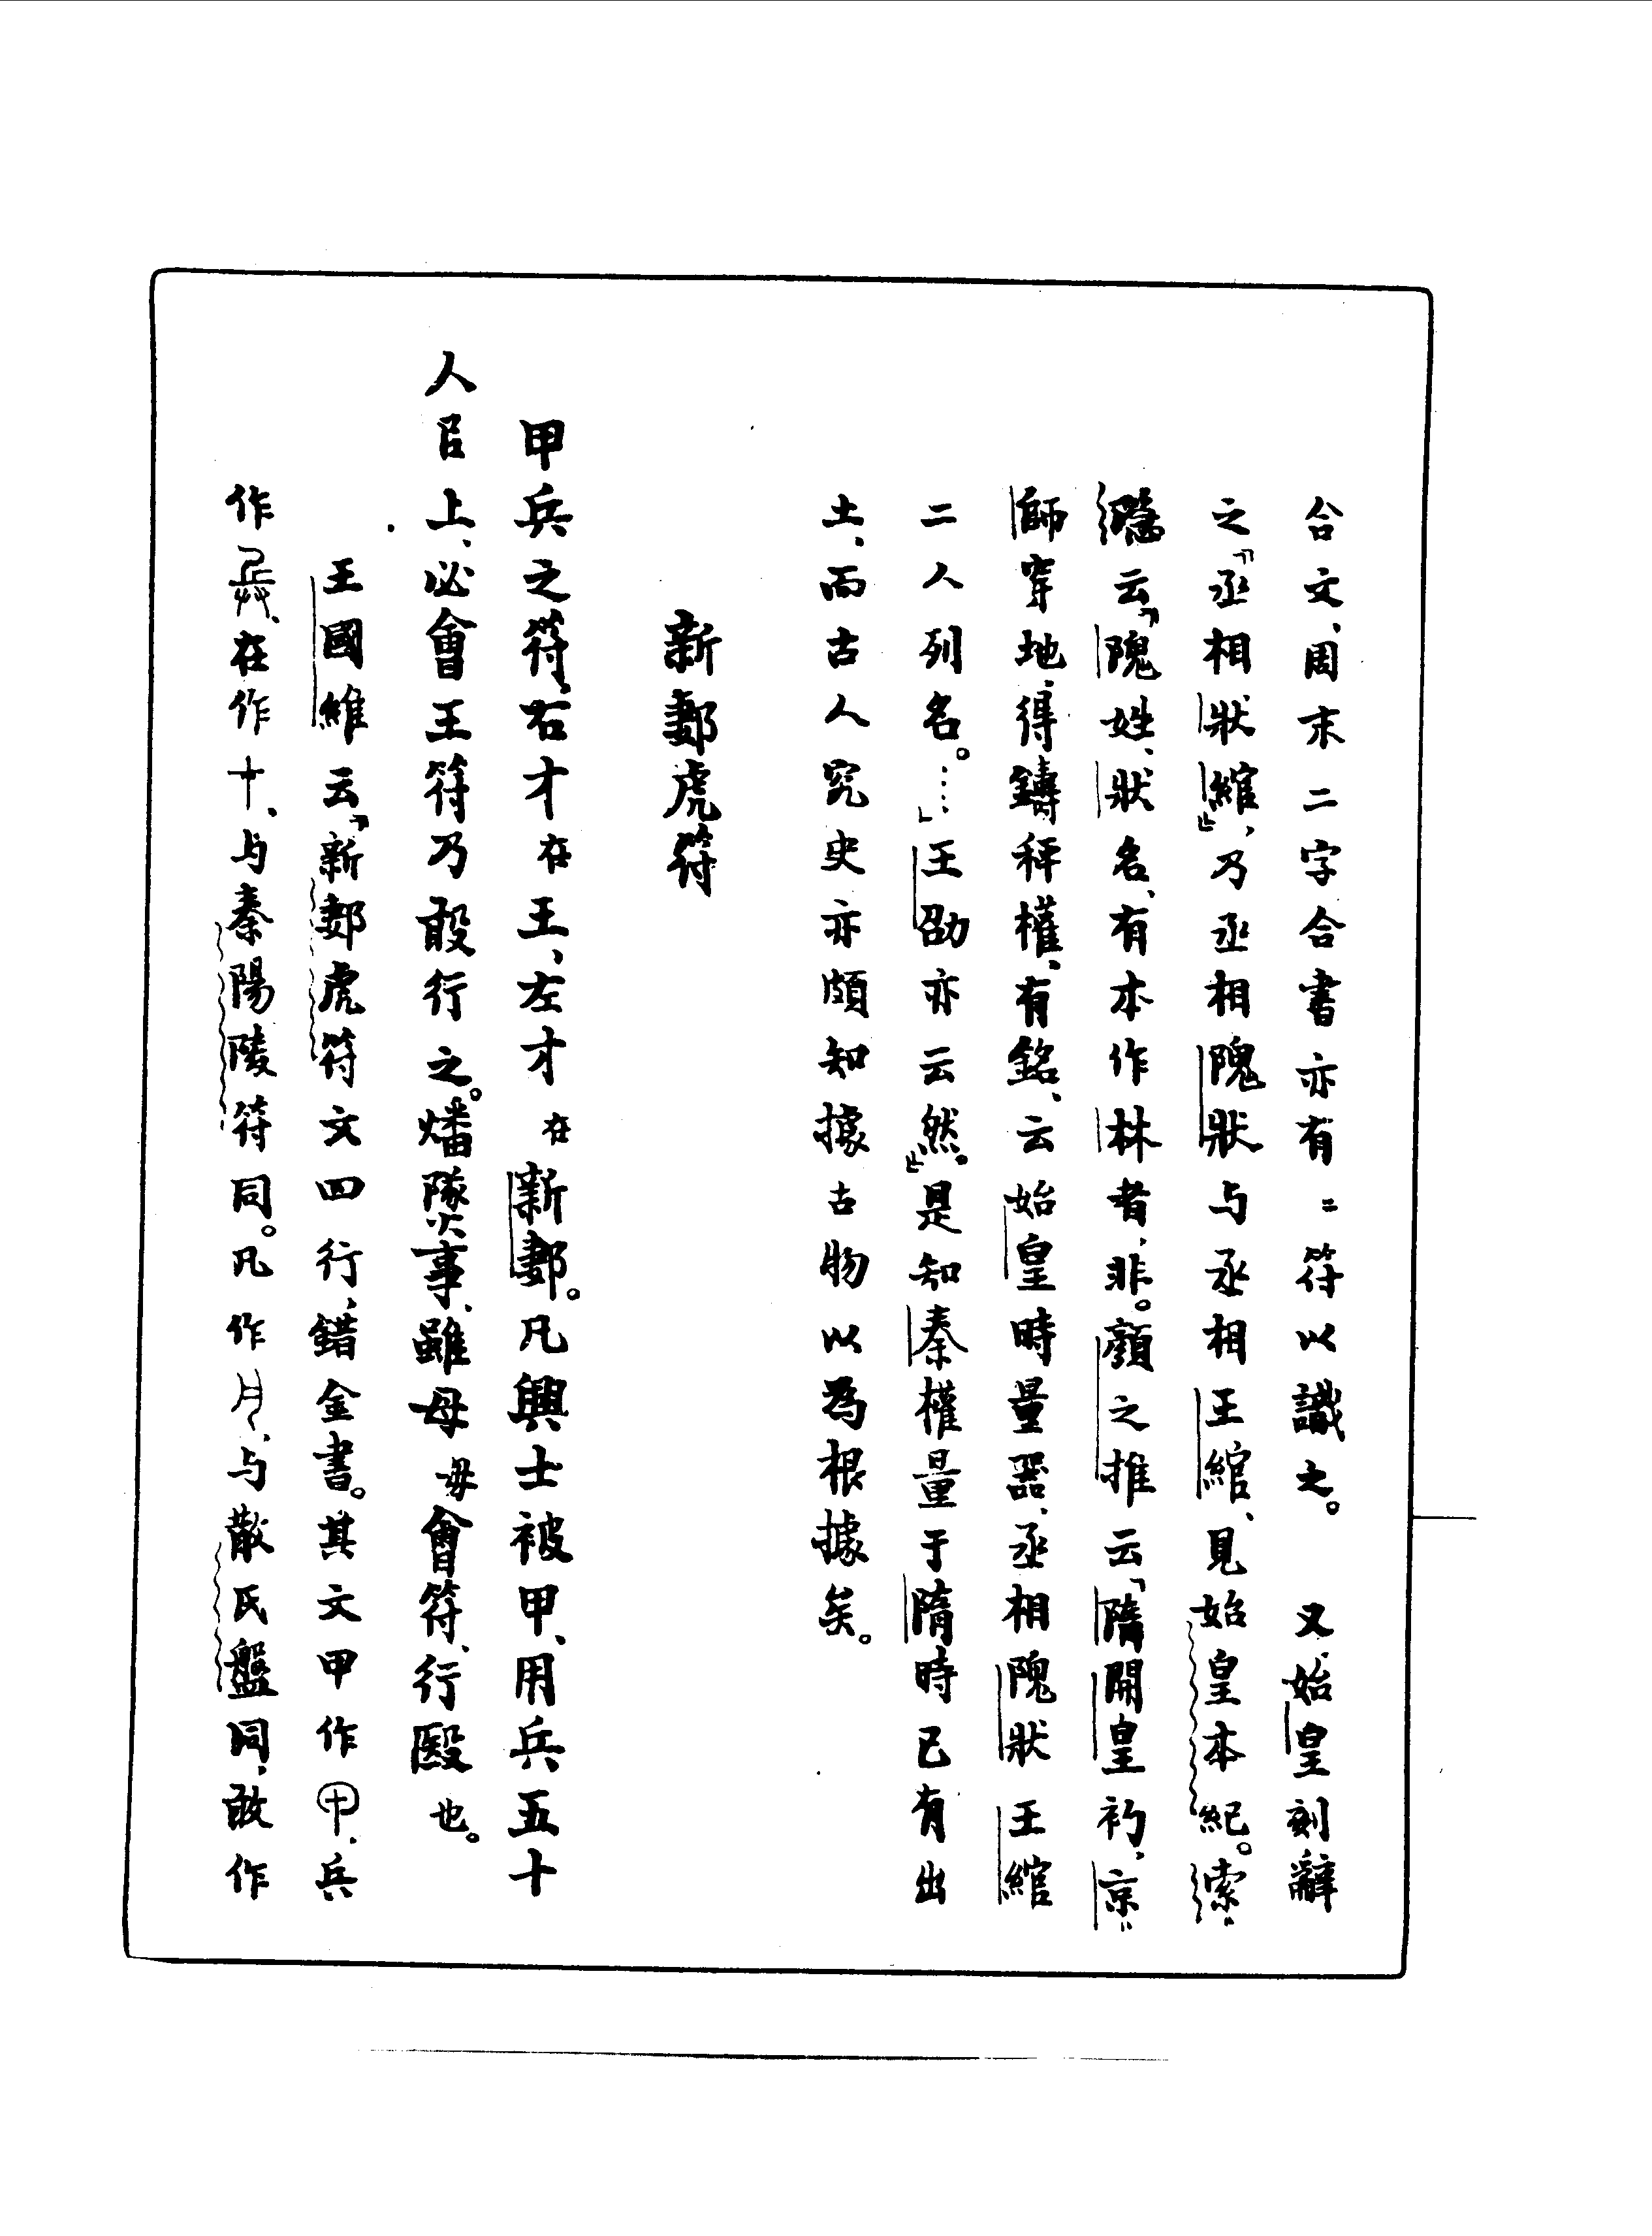 合文、周末二字合書亦有=符以識之。　又、始皇刻辭
之「丞相狀綰」、乃丞相隗狀与丞相王綰、見始皇本紀。索“
隱云、「隗姓、狀名、有本作林者、非。顏之推云、「隋開皇初、京“
師穿地、得鑄秤權、有銘、云始皇時量器、丞相隗狀王綰
二人列名。……」王劭亦云然。」是知秦權量于隋時已有出
土、而古人究史亦頗知據古物以為根據矣。
新郪虎符
甲兵之符、右才在王、左才在新郪。凡興士被甲、用兵五十
人㠯上、必會王符乃敢行之。燔隊事、雖母毋會符、行殹也。
王國維云、「新郪虎符文四行、錯金書。其文甲作、兵
作、在作十、与秦陽陵符同。凡作、与散氏盤同、敢作